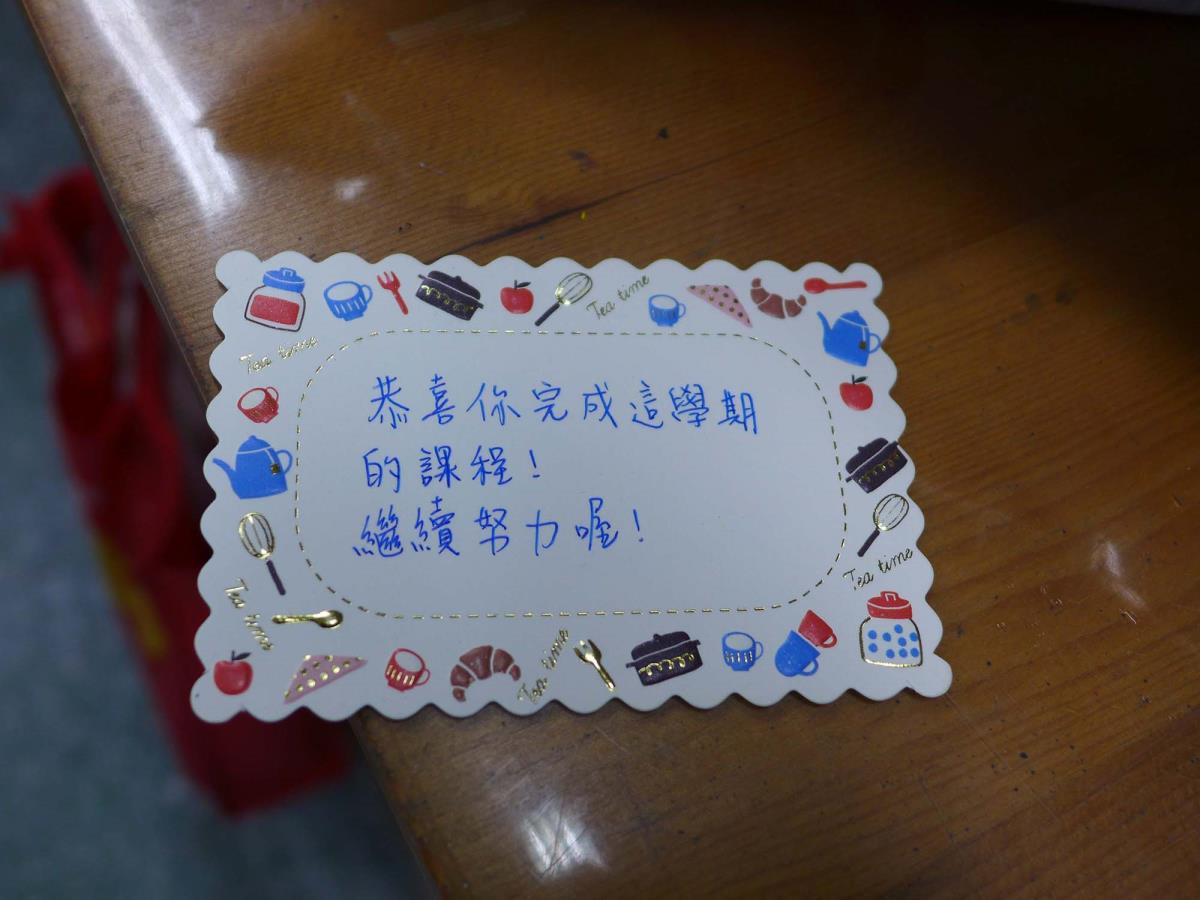 Tea time
Tea time
恭喜你完成這學期
的課程!
繼續努力喔!
Tea time
Tea time
Tea time